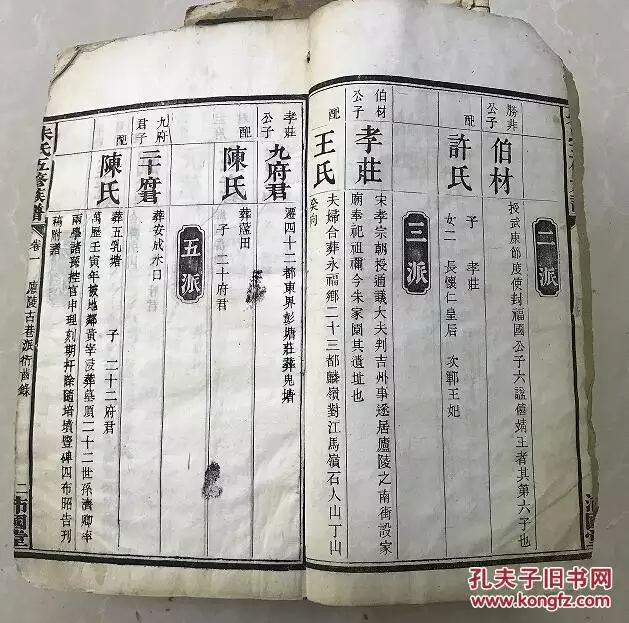 二派
勝非公子
伯材
授武康節度使封福國公子六諡僖靖王者其第六子也
配
許氏
子 孝莊
女二 長懷仁皇后 次鄆王妃
三派
伯材公子
孝莊
宋孝宗朝授通議大夫判吉州事遂居廬陵之南街設家
廟奉祀祖禰今朱家園其遺址也
配
王氏
夫婦合葬永福鄉二十三都麟嶺對江馬嶺石人山丁山
癸向
孝莊公子
九府君
遷四十二都東界彭塘莊葬鳧塘
配
陳氏
葬藍田
子 二十府君
五派
九府君子
二十府君
葬安成水日
配
陳氏
葬五乳塘
子 二十二府君
萬歷壬寅年被地鄰黃宰
葬墓頂二十二世孫濟卿率
兩學諸孫控官申理刻期扦除隨培墳豎碑四布昭告刊
稿附譜
朱氏五修族譜
卷一
廬陵古巷派衍齒錄
二
沛國堂
孔夫子旧书网
www.kongfz.com